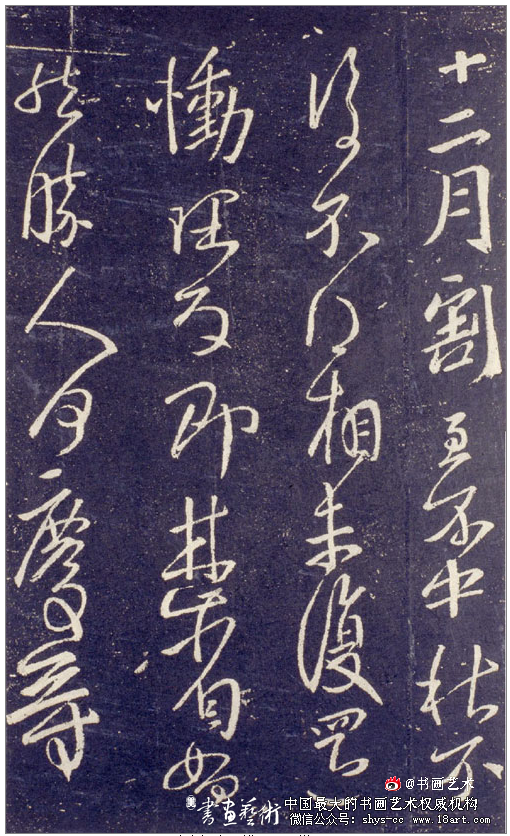 十二月割至不中秋不
復不得相未復還
慟理為即甚省如何
然勝人何慶等
@书画艺术
書畫藝術
中国最大的书画艺术权威机构
微信公众号：shys-cc www.18art.com